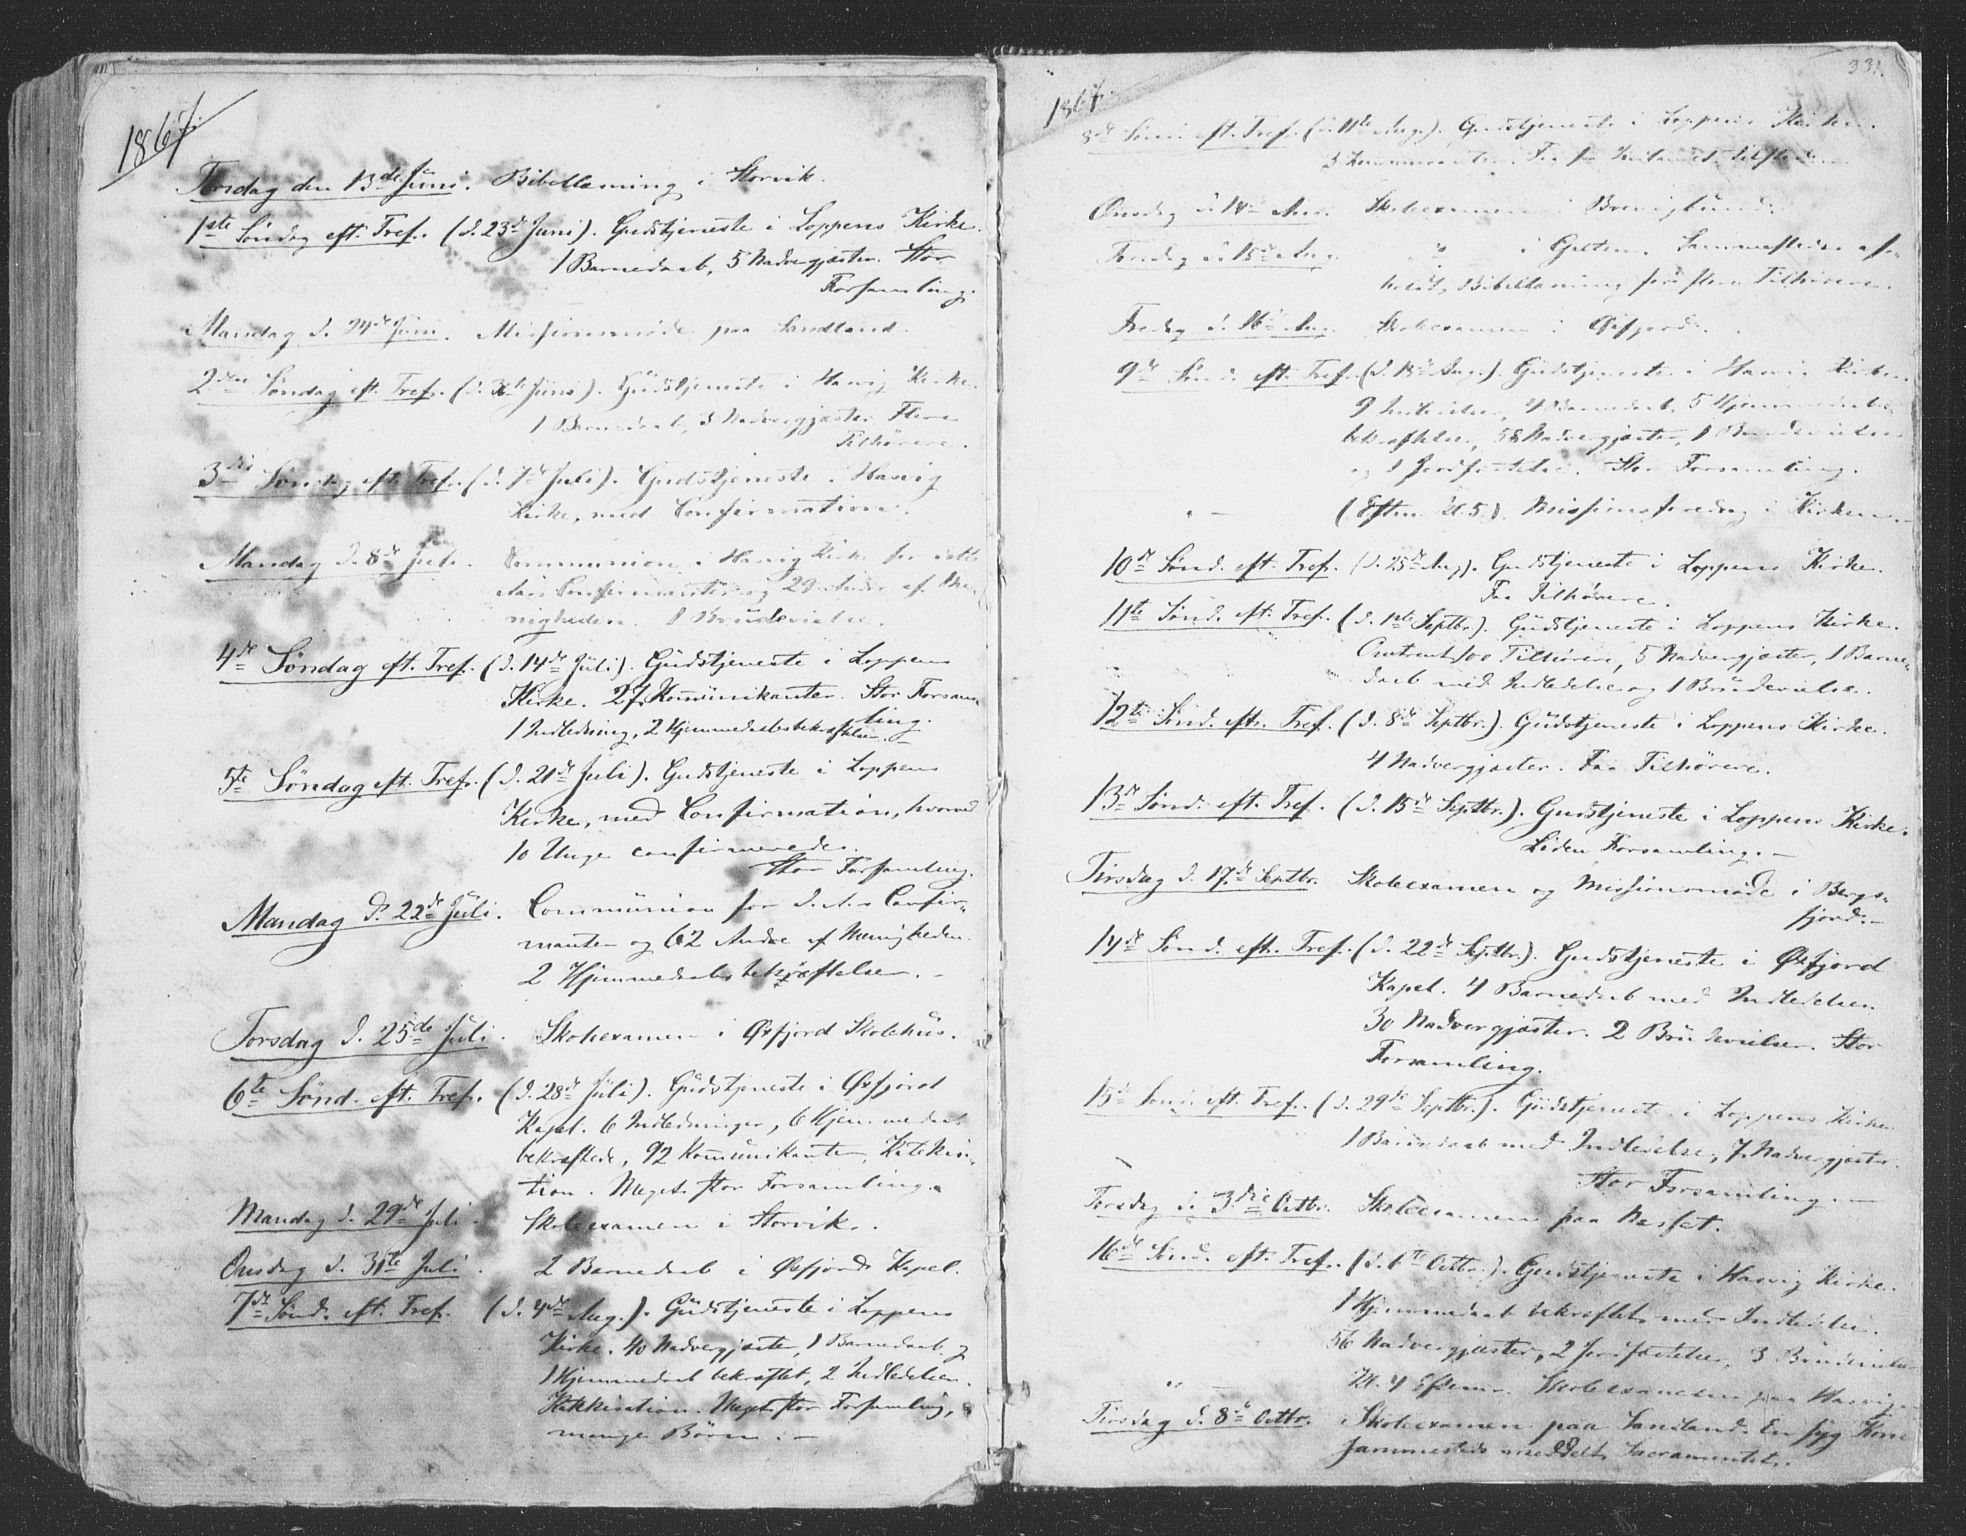 1867.
Torsdag den 13de Juni. Bibellæsning i Storvik.
1ste Søndag eft. Tref. (d. 23de Juni). Gudstjeneste i Loppens Kirke.
1 Barnedaab, 5 Nadvergjæster. Stor
Forsamling.
Mandag d. 24de Juni. Missionsmøde paa Sandland.
2den Søndag eft. Tref. (d. 30te Juni). Gudstjeneste i Hasvig Kirke.
1 Barnedaab, 3 Nadvergjæster. Flere
Tilhørere.
3die Søndag eft. Tref. (d. 7de Juli). Gudstjeneste i Hasvig
Kirke, med Confirmation.
Mandag d. 8de Juli. Communion i Hasvig Kirke for dette
Aars Confirmanter og 29 Andre af Me-
nigheden. 1 Brudevielse.
4de Søndag eft. Tref. (d. 14de Juli). Gudstjeneste i Loppens
Kirke. 27 Kommunikanter. Stor Forsam-
ling.
1 Indledning, 2 Hjemmedaabsbekræftelser.
5te Søndag eft. Tref. (d. 21de Juli). Gudstjeneste i Loppens
Kirke, med Confirmation, hvorved
10 Unge confirmeredes.
Stor Forsamling.
Mandag d. 22de Juli. Communion for d. A.s Confir-
manter og 62 Andre af Menigheden.
2 Hjemmedaabsbekræftelser. -
Torsdag d. 25de Juli. Skoleexamen i Øxfjord Skolehus.
6te Sønd. eft. Tref. (d. 28de Juli). Gudstjeneste i Øxfjord
Kapel. 6 Indledninger, 6 Hjemmedaab
bekræftede, 92 Kommunikanter, Katekisa-
tion. Meget stor Forsamling.
Mandag d. 29de Juli. Skoleexamen i Storvik.
Onsdag d. 31te Juli. 2 Barnedaab i Øxfjords Kapel.
7de Sønd. eft. Tref. (d. 4de Aug.). Gudstjeneste i Loppens
Kirke. 40 Nadvergjæster, 1 Barnedaab og
1 Hjemmedaab bekræftet, 2 Indledelser.
Katekisation. Meget stor Forsamling,
mange Børn. -
331.
1867.
8de Sønd. eft. Tref. (d. 11te Aug.). Gudstjeneste i Loppens Kirke.
3 Kommunikanter. Faa
Onsdag d. 14de Aug. Skoleexamen i
Torsdag d. 15de Aug. " i Galten. Sammesteds af-
holdt Bibellæsning for flere Tilhørere.
Fredag d. 16de Aug. Skoleexamen i Øxfjord.
9de Sønd. eft. Tref. (d. 18de Aug.). Gudstjeneste i Hasvig Kirke.
9 Indledelser, 4 Barnedaab, 5 Hjemmedaabs-
bekræftelser, 58 Nadvergjæster, 1 Brudevielse
og 1 Jordfæstelse. Stor Forsamling.
" - (Efterm. Kl. 5.). Missionsforedrag i Kirken. -
10de Sønd. eft. Tref. (d. 25de Aug.). Gudstjeneste i Loppens Kirke.
Faa Tilhørere.
11te Sønd. eft. Tref. (d. 1ste Septbr.). Gudstjeneste i Loppens Kirke.
Omtrent 100 Tilhørere, 5 Nadvergjæster, 1 Barne-
daab med Indledelse og 1 Brudevielse.
12te Sønd. eft. Tref. (d. 8de Septbr.). Gudstjeneste i Loppens Kirke.
4 Nadvergjæster. Faa Tilhørere.
13de Sønd. eft. Tref. (d. 15de Septbr.). Gudstjeneste i Loppens Kirke.
Liden Forsamling. -
Tirsdag d. 17de Septbr. Skoleexamen og Missionsmøde i Bergs-
fjord. -
14de Sønd. eft. Tref. (d. 22de Septbr.). Gudstjeneste i Øxfjord
Kapel. 4 Barnedaab med Indledelser.
30 Nadvergjæster. 2 Brudevielser. Stor
Forsamling.
15de Sønd. eft. Tref. (d. 29de Septbr.). Gudstjeneste i Loppens Kirke.
1 Barnedaab med Indledelse, 7 Nadvergjæster.
Stor Forsamling. -
Torsdag d. 3die Octbr. Skoleexamen paa Næsset.
16de Sønd. eft. Tref. (d. 6te Octbr.). Gudstjeneste i Hasvig Kirke.
1 Hjemmedaab bekræftet med Indledelse.
56 Nadvergjæster, 2 Jordfæstelser, 3 Brudevielser
" Kl. 4 Efterm. Skoleexamen paa Hasvig.
Tirsdag d. 8de Octbr. Skoleexamen paa Sandland. En syg Kone
sammesteds meddelt Sacramentet.